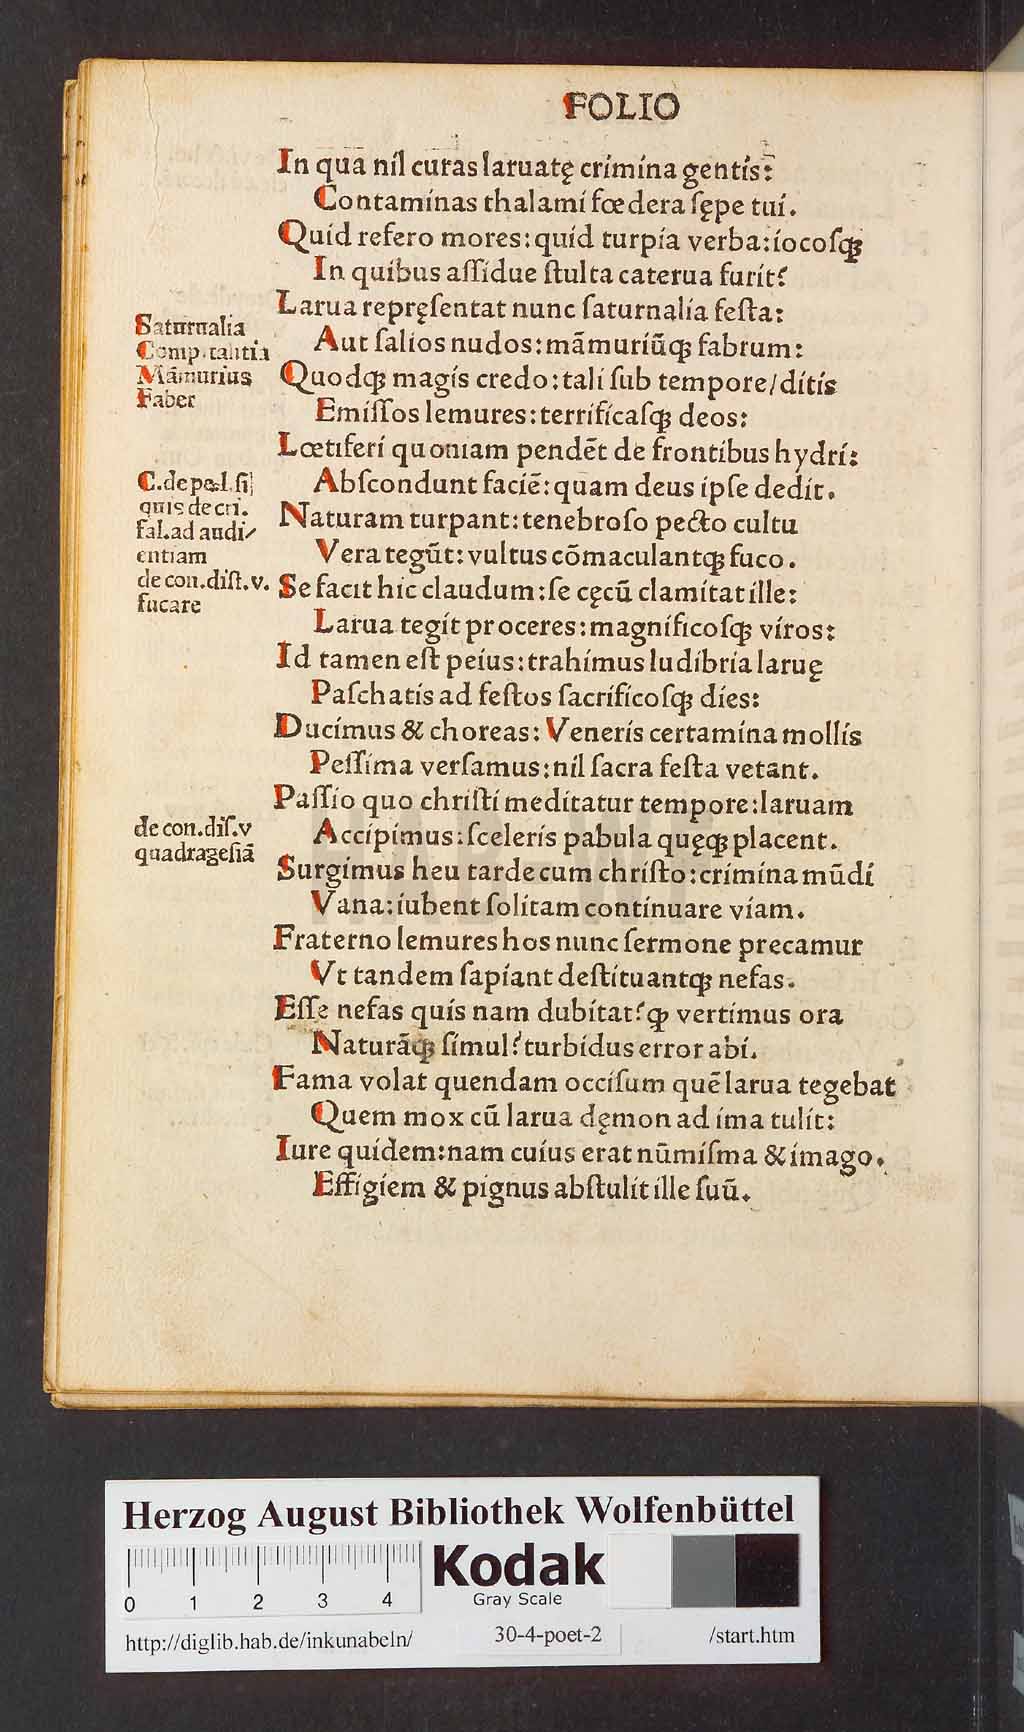 FOLIO
In qua nil curas laruatę crimina gentis:
Contaminas thalami fœdera ſępe tui.
Quid refero mores: quid turpia verba: iocoſꝙ
In quibus aſſidue ſtulta caterua furit?
Larua repręſentat nunc ſaturnalia feſta:
Aut ſalios nudos: mãmuriũꝙ fabrum:
Quodꝙ magis credo: tali ſub tempore/ditis
Emiſſos lemures: terrificaſꝙ deos:
Lœtiferi quoniam pendẽt de frontibus hydri:
Abſcondunt faciẽ: quam deus ipſe dedit.
Naturam turpant: tenebroſo pecto cultu
Vera tegũt: vultus cõmaculantꝙ fuco.
Se facit hic claudum: ſe cęcũ clamitat ille:
Larua tegit proceres: magnificoſꝙ viros:
Id tamen eſt peius: trahimus ludibria laruę
Paſchatis ad feſtos ſacrificoſꝙ dies:
Ducimus & choreas: Veneris certamina mollis
Peſſima verſamus: nil ſacra feſta vetant.
Paſſio quo chriſti meditatur tempore: laruam
Accipimus: ſceleris pabula quęꝙ placent.
Surgimus heu tarde cum chriſto: crimina mũdi
Vana: iubent ſolitam continuare viam.
Fraterno lemures hos nunc ſermone precamur
Vt tandem ſapiant deſtituantꝙ nefas.
Eſſe nefas quis nam dubitat? ꝙ vertimus ora
Naturãꝙ ſimul? turbidus error abi.
Fama volat quendam occiſum quẽ larua tegebat
Quem mox cũ larua dęmon ad ima tulit:
Iure quidem: nam cuius erat nũmiſma & imago.
Effigiem & pignus abſtulit ille ſuũ.
Saturnalia
Comp. talitia
Mãmurius
Faber
C. de pœ. l. ſi
quis de cri.
fal. ad audi/
entiam
de con. diſt. v.
fucare
de con. diſ. v
quadrageſiã
HAB-WF
Herzog August Bibliothek Wolfenbüttel
0 1 2 3 4
Kodak
Gray Scale
http://diglib.hab.de/inkunabeln/ 30-4-poet-2 /start.htm